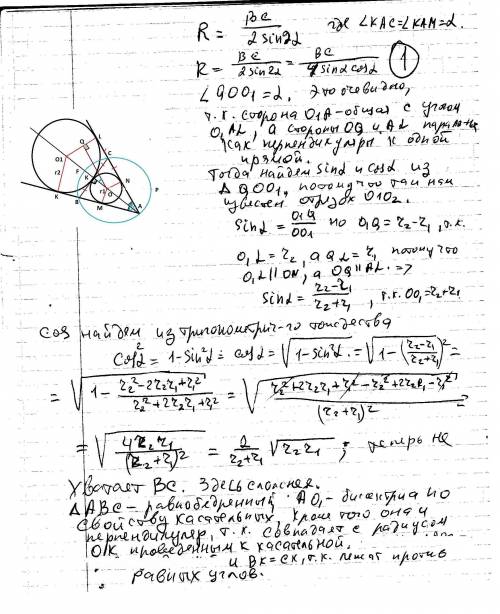 R = BC / 2sin2α где ∠KAC=∠KAM=α.
R = BC / 2sin2α = BC / 4sinα cosα (1)
∠QOO1=α. Это очевидно,
т.к. сторона O1A-общая с углом
O1AL, а стороны OQ и AL паралл-ны
как перпендикуляры к одной
прямой.
Тогда найдем sinα и cosα из
ΔQOO1, потому что там нам
известен отрезок O1O2.
sinα = O1Q / OO1 но O1Q = r2-r1, т.к.
O1L = r2, а QL = r1 потому что
O1L || ON, а OQ || AL =>
sinα = r2-r1 / r2+r1, т.к. OO1=r2+r1
cos найдем из тригонометрич-го тождества
cos²α = 1-sin²α = cosα = √1-sin²α = √1-(r2-r1 / r2+r1)² =
= √1 - r2²-2r2r1+r1² / r2²+2r2r1+r1² = √r2²+2r2r1+r1²-r2²+2r2r1-r1² / (r2+r1)² =
= √4r2r1 / (r2+r1)² = 2 / r2+r1 √r2r1 ; теперь не
хватает BC. Здесь сложнее.
ΔABC - равнобедренный AO1 - биссектриса по
свойству касательных, кроме того она и
перпендикуляр, т.к. совпадает с радиусом
OK проведенным к касательной.
и BK=CK, т.к. лежат против
равных углов.
L
C
Q
O1
F
K
N
r2
r1
O
P
K
B
M
A